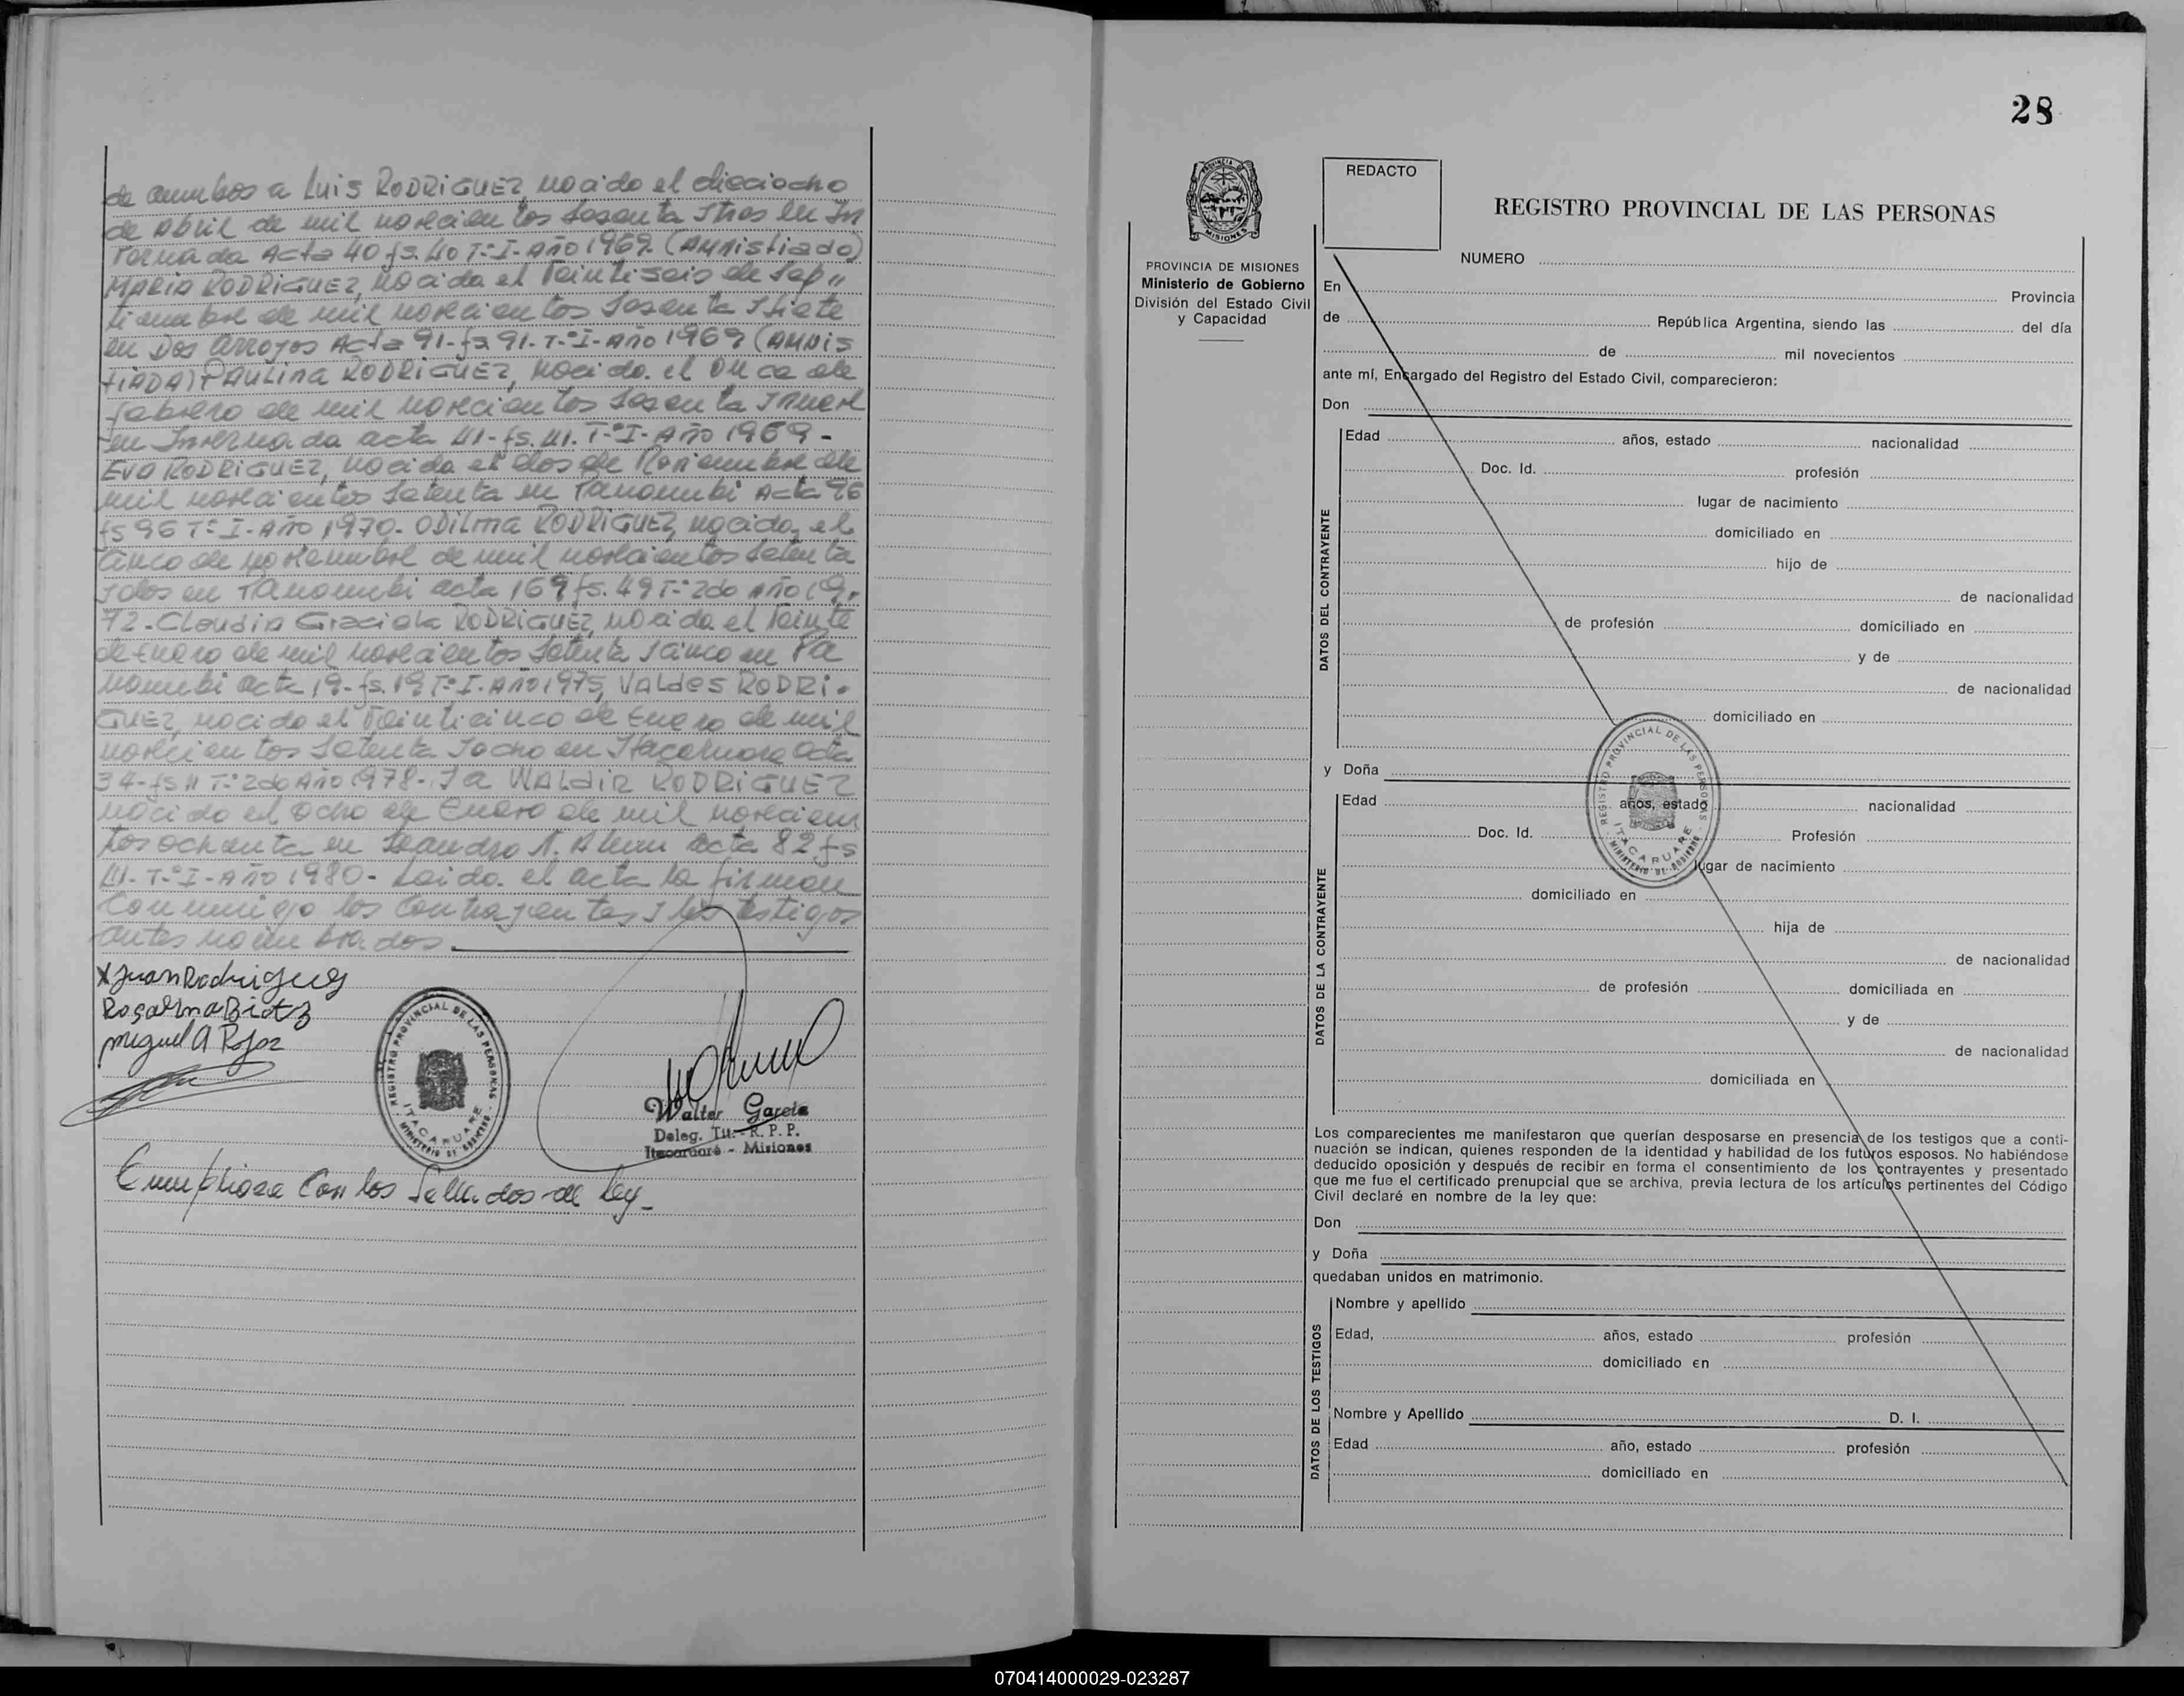 de ambos a Luis RODRIGUEZ, nacido el dieciocho
de Abril de mil novecientos sesenta y tres en In
ternada Acta 40 fs. 40 T:I-Año 1969. (AMNistiado)
MARIA RODRIGUEZ, nacida el veintiseis de Sep„
tiembre de mil novecientos sesenta y siete
en Dos Arroyos Acta 91-fs 91. T:I-Año 1969 (AMNIS
tiADA) PAULINA RODRIGUEZ, nacida. el once de
febrero de mil novecientos sesenta y nueve
en Internada acta 41-fs. 41. T:I-Año 1969-
EVA RODRIGUEZ, nacida el dos de Noviembre de
mil novecientos setenta en Panambi Acta 96
fs 96 T:I-Año 1970- ODilma RODRIGUEZ, nacida, el
cinco de noviembre de mil novecientos setenta
y dos en Panambi acta 169 fs. 49 T: 2do Año 19.
72-Claudia Graciela RODRIGUEZ, nacida el veinte
de Enero de mil novecientos setenta y cinco en Pa
nambi acta 19-fs. 19 T:I. Año 1975, VALDES RODRI-
GUEZ, nacido el veinticinco de Enero de mil
novecientos setenta y ocho en Itacaruare acta
34-fs 11 T: 2do Año 1978- y a WALdir RODRIGUEZ
nacido el ocho de Enero de mil novecien
tos ochenta en Leandro N. Alem acta 82 fs
41. T:I-Año 1980- Leida. el acta la firman
conmigo los contrayentes y los testigos
antes nombrados.
X Juan Rodriguez
Rosalina Bietz
Miguel A Rojas
REGISTRO PROVINCIAL DE LAS PERSONAS
ITACARUARE
MINISTERIO DE GOBIERNO
Walter Garcia
Deleg. Tit.- R. P. P.
Itacaruaré - Misiones
Cumpliose con los Sellados de ley-
28
PROVINCIA DE MISIONES
Ministerio de Gobierno
División del Estado Civil
y Capacidad
REDACTO
REGISTRO PROVINCIAL DE LAS PERSONAS
NUMERO
En Provincia
de República Argentina, siendo las del día
de mil novecientos
ante mí, Encargado del Registro del Estado Civil, comparecieron:
Don
DATOS DEL CONTRAYENTE
Edad años, estado nacionalidad
Doc. Id. profesión
lugar de nacimiento
domiciliado en
hijo de
de nacionalidad
de profesión domiciliado en
y de
de nacionalidad
domiciliado en
y Doña
DATOS DE LA CONTRAYENTE
Edad años, estado nacionalidad
Doc. Id. Profesión
lugar de nacimiento
domiciliado en
hija de
de nacionalidad
de profesión domiciliada en
y de
de nacionalidad
domiciliada en
REGISTRO PROVINCIAL DE LAS PERSONAS
ITACARUARE
MINISTERIO DE GOBIERNO
Los comparecientes me manifestaron que querían desposarse en presencia de los testigos que a conti-
nuación se indican, quienes responden de la identidad y habilidad de los futuros esposos. No habiéndose
deducido oposición y después de recibir en forma el consentimiento de los contrayentes y presentado
que me fue el certificado prenupcial que se archiva, previa lectura de los artículos pertinentes del Código
Civil declaré en nombre de la ley que:
Don
y Doña
quedaban unidos en matrimonio.
DATOS DE LOS TESTIGOS
Nombre y apellido
Edad, años, estado profesión
domiciliado en
Nombre y Apellido D. I.
Edad año, estado profesión
domiciliado en
070414000029-023287